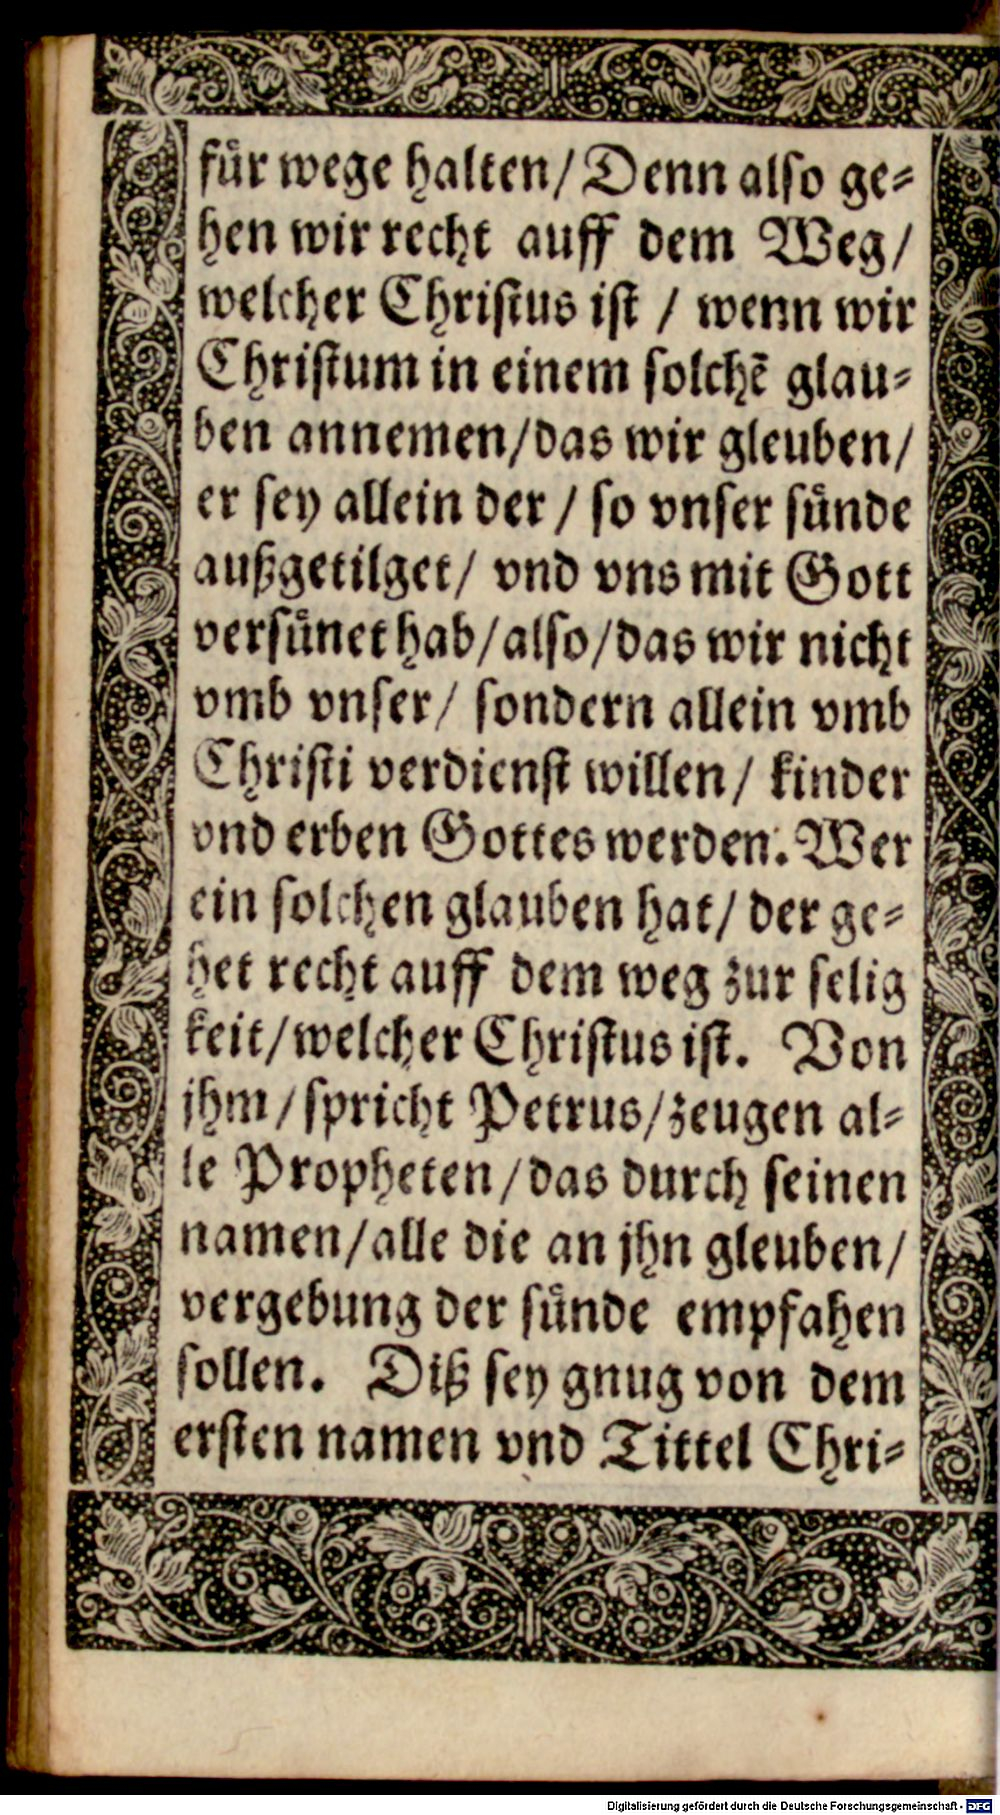 fuͤr wege halten/ Denn also ge⸗
hen wir recht auff dem Weg/
welcher Christus ist / wenn wir
Christum in einem solchẽ glau⸗
ben annemen/das wir gleuben/
er sey allein der / so vnser suͤnde
außgetilget/ vnd vns mit Gott
versuͤnet hab/also/das wir nicht
vmb vnser/ sondern allein vmb
Christi verdienst willen/ kinder
vnd erben Gottes werden. Wer
ein solchen glauben hat/ der ge⸗
het recht auff dem weg zur selig
keit/welcher Christus ist. Von
jhm/spricht Petrus/zeugen al⸗
le Propheten/das durch seinen
namen/alle die an jhn gleuben/
vergebung der suͤnde empfahen
sollen. Diß sey gnug von dem
ersten namen vnd Tittel Chri⸗
Digitalisierung gefördert durch die Deutsche Forschungsgemeinschaft - DFG